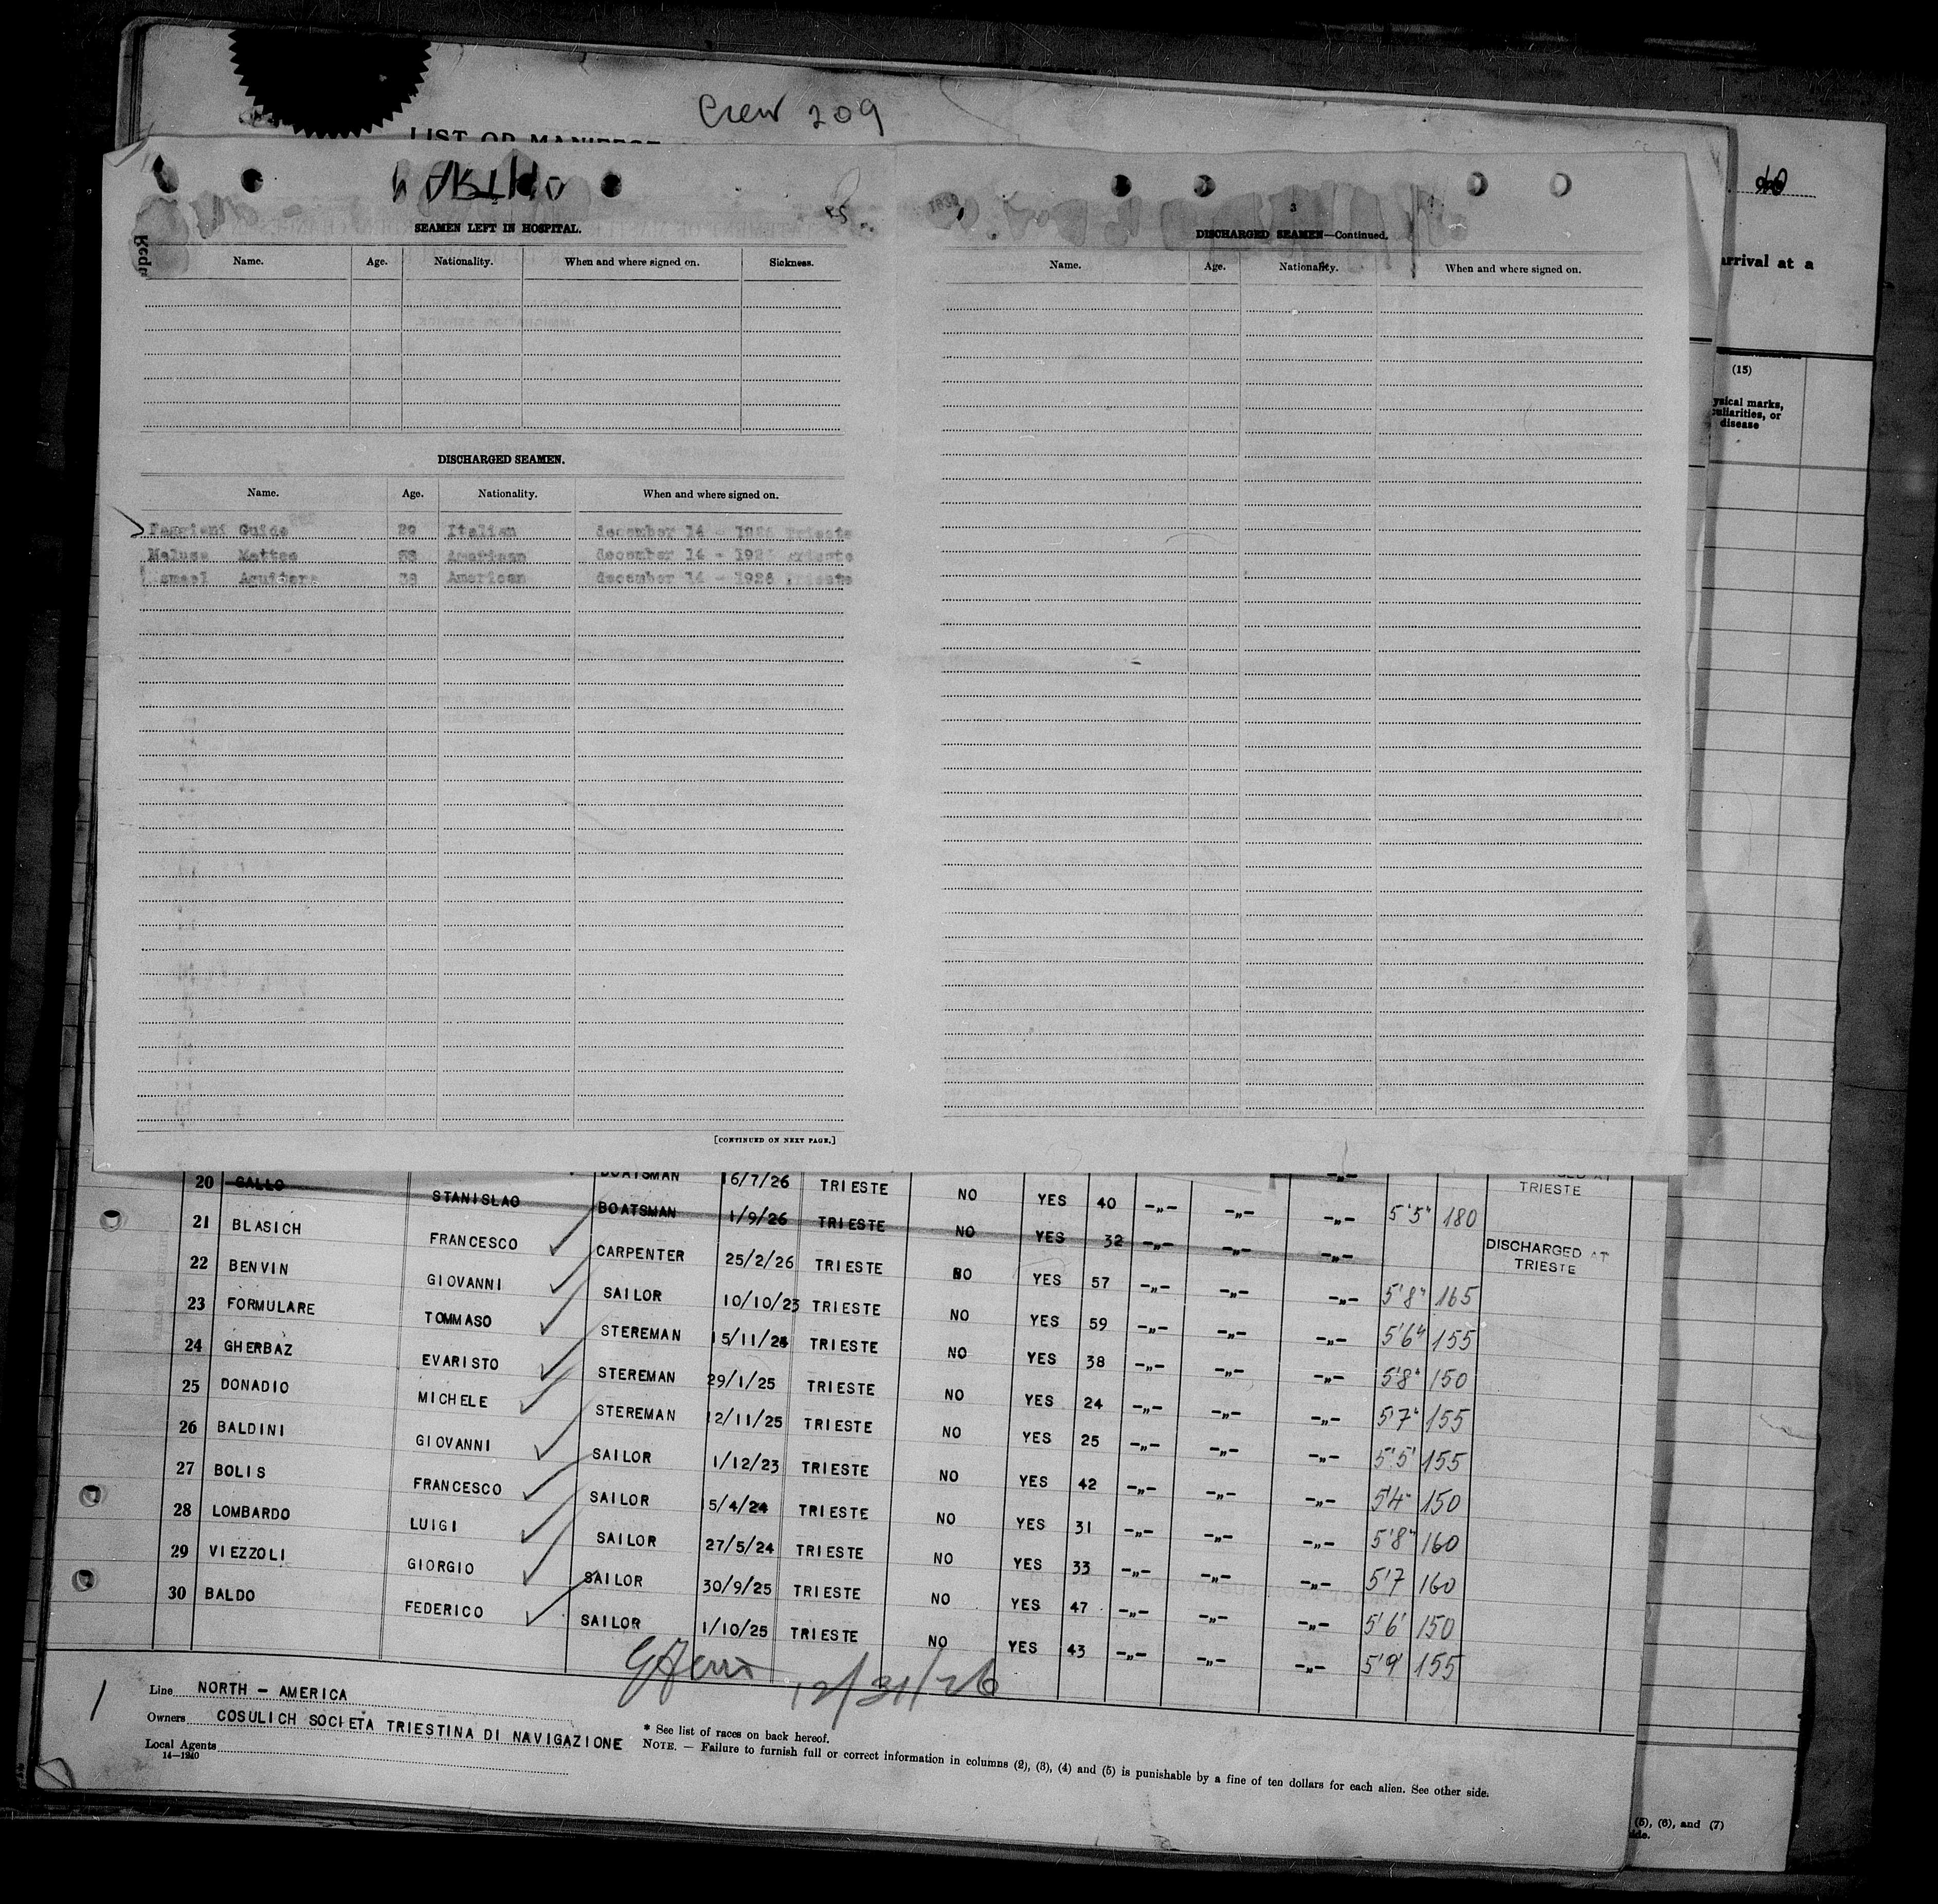 Crew 209
LIST OR MANIFEST
arrival at a
(15)
ysical marks,
culiarities, or
disease
SEAMEN LEFT IN HOSPITAL.
Name. Age. Nationality. When and where signed on. Sickness.
DISCHARGED SEAMEN.
Name. Age. Nationality. When and where signed on.
Guido 29 Italian december 14 - 1926 Trieste
Matteo American december 14 - 1926 Trieste
38 American december 14 - 1926 Trieste
[CONTINUED ON NEXT PAGE.]
3
DISCHARGED SEAMEN—Continued.
Name. Age. Nationality. When and where signed on.
20 GALLO STANISLAO BOATSMAN 16/7/26 TRIESTE NO YES 40 -„- -„- -„- 5'5" 180 TRIESTE
21 BLASICH FRANCESCO BOATSMAN 1/9/26 TRIESTE NO YES 32 -„- -„- -„- DISCHARGED AT TRIESTE
22 BENVIN GIOVANNI CARPENTER 25/2/26 TRIESTE NO YES 57 -„- -„- -„- 5'8" 165
23 FORMULARE TOMMASO SAILOR 10/10/23 TRIESTE NO YES 59 -„- -„- -„- 5'6" 155
24 GHERBAZ EVARISTO STEREMAN 15/11/24 TRIESTE NO YES 38 -„- -„- -„- 5'8" 150
25 DONADIO MICHELE STEREMAN 29/1/25 TRIESTE NO YES 24 -„- -„- -„- 5'7" 155
26 BALDINI GIOVANNI STEREMAN 12/11/25 TRIESTE NO YES 25 -„- -„- -„- 5'5' 155
27 BOLIS FRANCESCO SAILOR 1/12/23 TRIESTE NO YES 42 -„- -„- -„- 5'4" 150
28 LOMBARDO LUIGI SAILOR 15/4/24 TRIESTE NO YES 31 -„- -„- -„- 5'8" 160
29 VIEZZOLI GIORGIO SAILOR 27/5/24 TRIESTE NO YES 33 -„- -„- -„- 5'7 160
30 BALDO FEDERICO SAILOR 30/9/25 TRIESTE NO YES 47 -„- -„- -„- 5'6' 150
SAILOR 1/10/25 TRIESTE NO YES 43 -„- -„- -„- 5'9' 155
12/31/26
Line NORTH - AMERICA
Owners COSULICH SOCIETA TRIESTINA DI NAVIGAZIONE
Local Agents
14—1240
* See list of races on back hereof.
NOTE. — Failure to furnish full or correct information in columns (2), (3), (4) and (5) is punishable by a fine of ten dollars for each alien. See other side.
(5), (6), and (7)